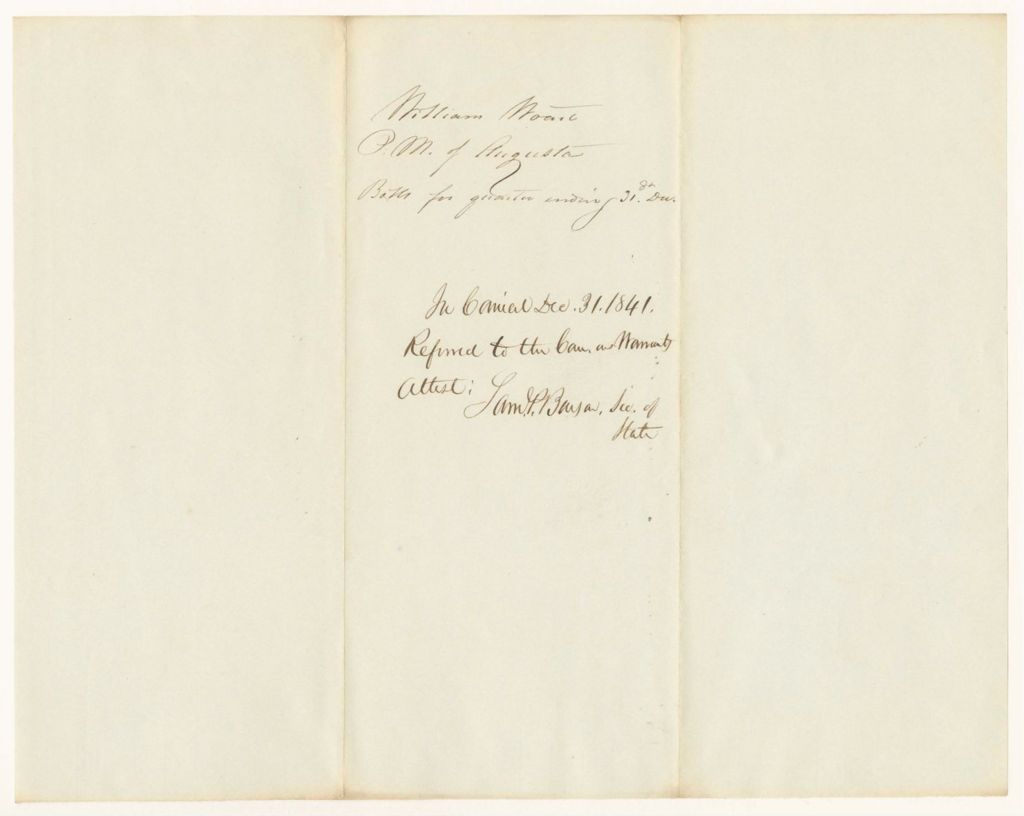 William Woart
P. M. of Augusta
Bill for quarter ending 31st Dec.
In Council Dec. 31. 1841.
Referred to the Com. on Warrants
Attest:
Saml. P. Benson, Sec. of
State